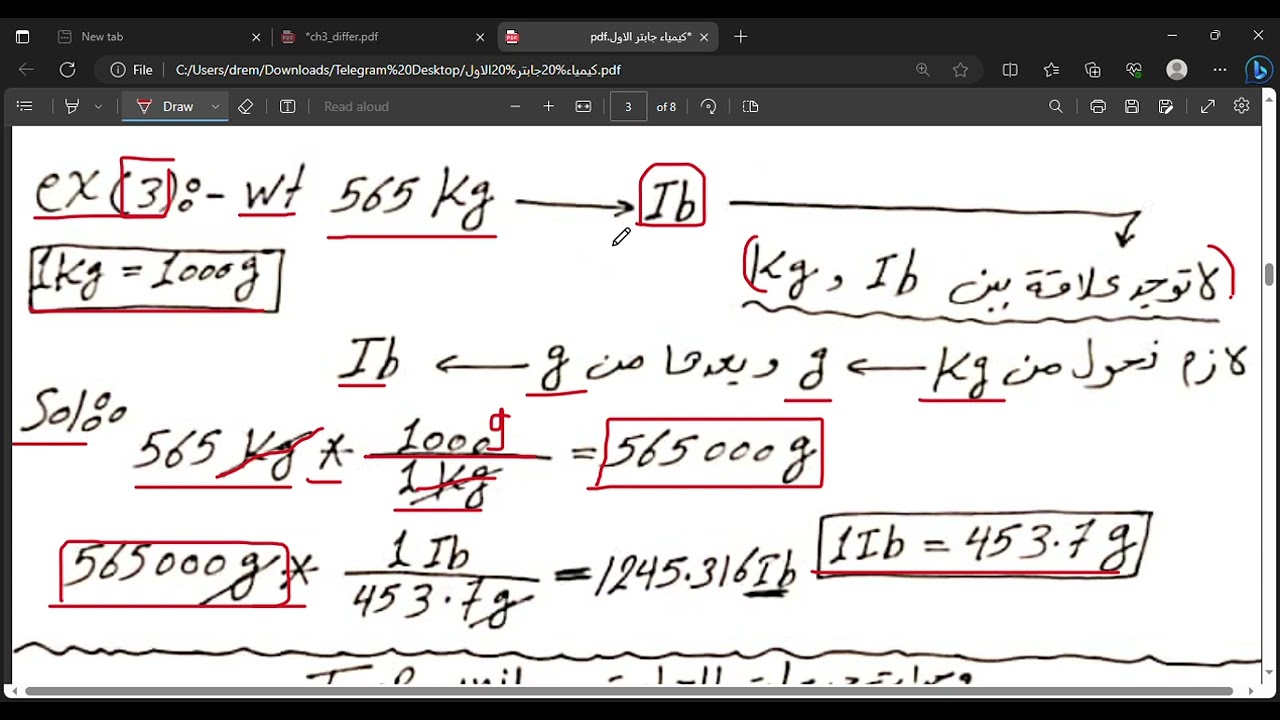 New tab
*ch3_differ.pdf
*كيمياء جابتر الاول.pdf
File
C:/Users/drem/Downloads/Telegram%20Desktop/كيمياء%20جابتر%20الاول.pdf
Draw
Read aloud
3 of 8
ex(3):- wt 565 Kg → Ib
1Kg = 1000g
لا توجد علاقة بين Kg , Ib
لازم نحول من Kg ← g وبعدها من g ← Ib
Sol:
565 Kg * 1000g / 1 Kg = 565000 g
565000 g * 1 Ib / 453.7g = 1245.316Ib
1Ib = 453.7 g